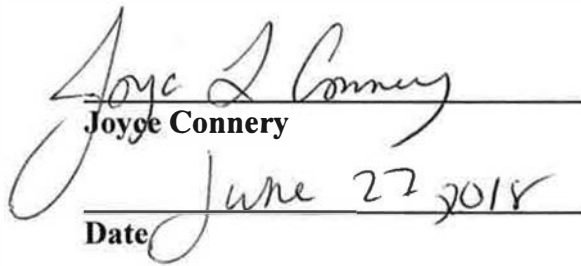 Joyce L Connery
Joyce Connery
June 27 2018
Date